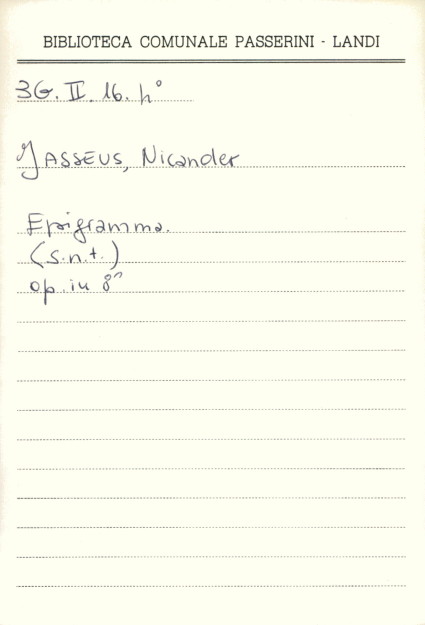 BIBLIOTECA COMUNALE PASSERINI - LANDI
3G. II. 16. p°
JASSEUS, Nicander
Epigramma.
(s.n.t.)
op. in 8°